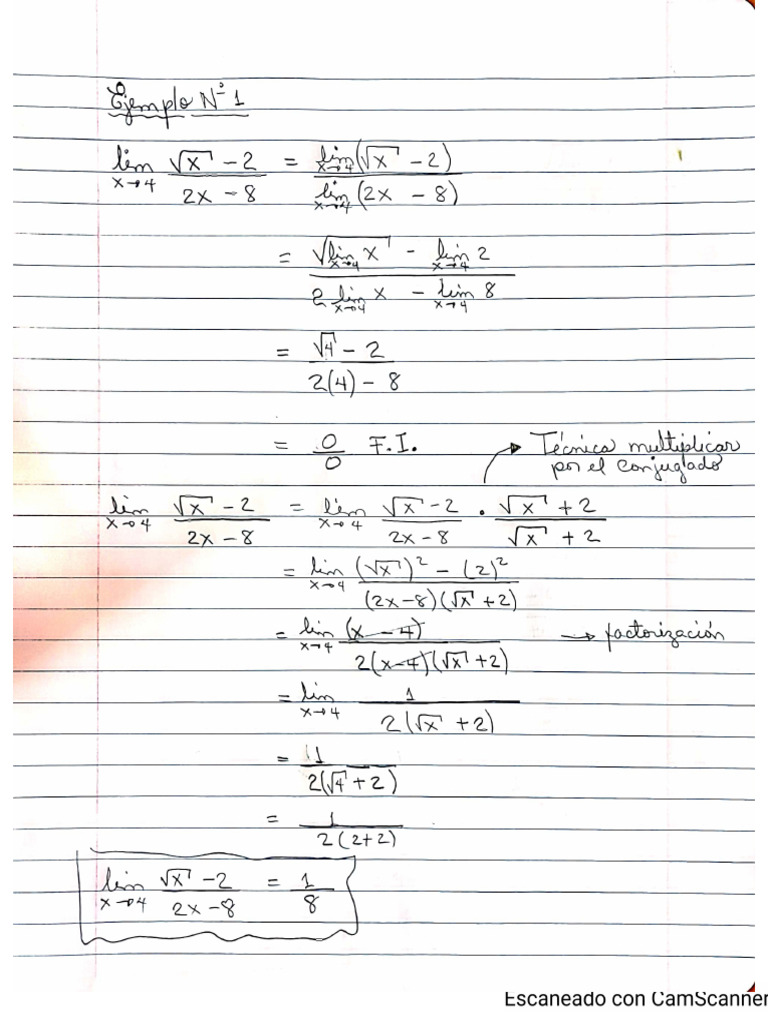 Ejemplo N° 1
lim x→4 (√x - 2)/(2x - 8) = lim x→4 (√x - 2) / lim x→4 (2x - 8)
= (√lim x→4 x - lim x→4 2)/(2 lim x→4 x - lim x→4 8)
= (√4 - 2)/(2(4) - 8)
= 0/0 F.I. → Técnica multiplicar
por el conjugado
lim x→4 (√x - 2)/(2x - 8) = lim x→4 (√x - 2)/(2x - 8) · (√x + 2)/(√x + 2)
= lim x→4 ((√x)² - (2)²)/((2x-8)(√x + 2))
= lim x→4 (x - 4)/(2(x-4)(√x + 2)) → factorización
= lim x→4 1/(2(√x + 2))
= 1/(2(√4 + 2))
= 1/(2(2+2))
lim x→4 (√x - 2)/(2x - 8) = 1/8
Escaneado con CamScanner